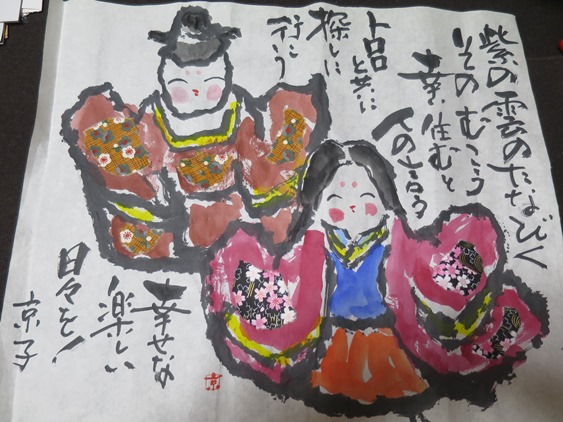 紫の雲のたなびく
そのむこう
幸住むと
人の言う
と共に
探しに
行こう
幸せな
楽しい
日々を!
京子
京